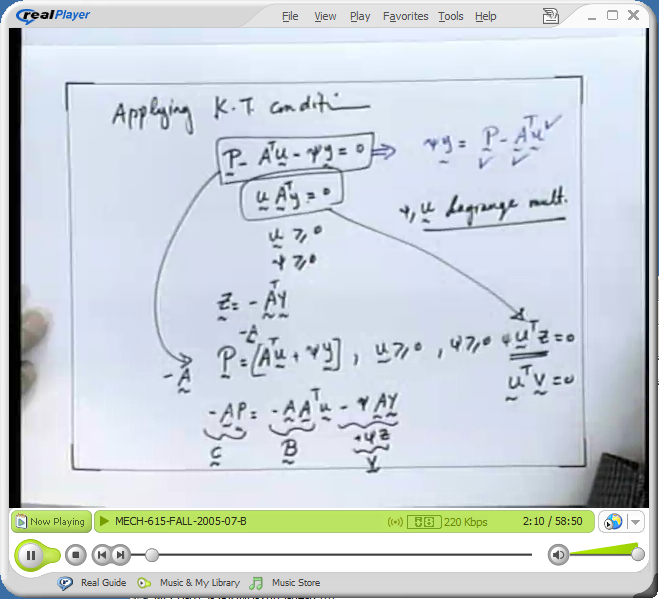 realPlayer
File View Play Favorites Tools Help
Applying K.T. conditi
P - AᵀU - ψy = 0 ⇒ ψy = P - Aᵀu
u Aᵀy = 0
ψ, u Lagrange mult.
u ≥ 0
ψ ≥ 0
z = - AᵀY
-A
-A P = [Aᵀu + ψy], u ≥ 0, ψ ≥ 0 ψuᵀz = 0
uᵀV = 0
-AP = -AAᵀu - ψAY
+ψz
C B V
Now Playing MECH-615-FALL-2005-07-B 220 Kbps 2:10 / 58:50
Real Guide Music & My Library Music Store